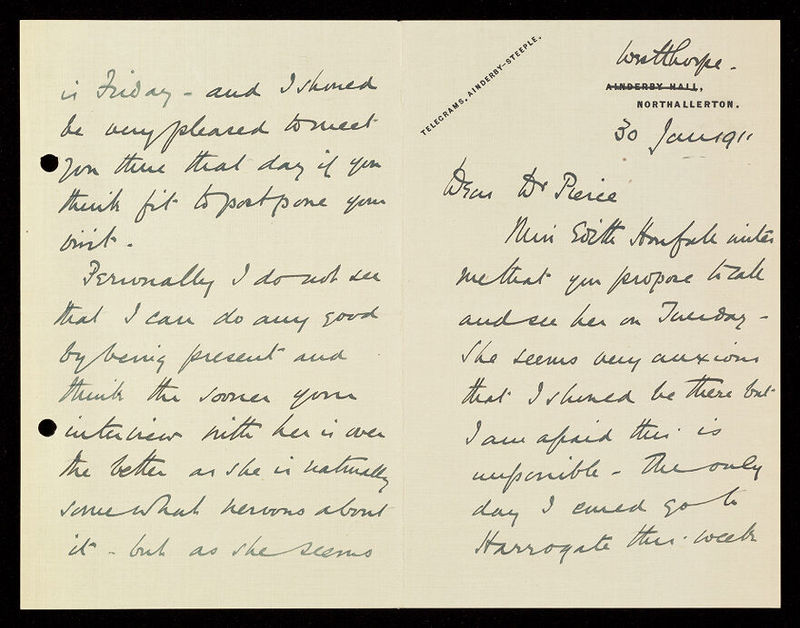 TELEGRAMS, AINDERBY-STEEPLE.
Westthorpe.
AINDERBY HALL,
NORTHALLERTON.
30 Jan 1911
Dear Dr Pierce
Miss Edith Horsfall writes
me that you propose to call
and see her on Tuesday -
She seems very anxious
that I should be there but
I am afraid this is
impossible - The only
day I could go to
Harrogate this week
is Friday - and I should
be very pleased to meet
you there that day if you
think fit to postpone your
visit -
Personally I do not see
that I can do any good
by being present and
think the sooner your
interview with her is over
the better as she is naturally
somewhat nervous about
it - but as she seems